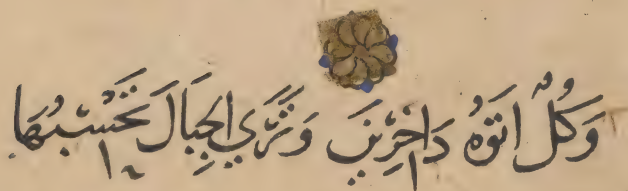 وَكُلٌّ اتَوْهُ دَاخِرِينَ وَتَرَي الجِبَالَ تَحْسَبُهَا